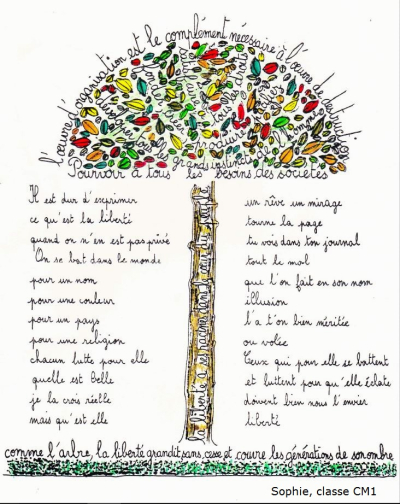 l'œuvre d'organisation est le complément nécessaire à l'œuvre de destruction
Pourvoir à tous les besoins des sociétés
Il est dur d'exprimer
ce qu'est la liberté
quand on n'en est pas privé
On se bat dans le monde
pour un nom
pour une couleur
pour un pays
pour une religion
chacun lutte pour elle
quelle est belle
je la crois réelle
mais qu'est elle
la liberté a ses racines dans le cœur du peuple
un rêve un mirage
tourne la page
tu vois dans ton journal
tout le mal
que l'on fait en son nom
illusion
l'a t'on bien méritée
ou volée
Ceux qui pour elle se battent
et luttent pour qu'elle éclate
doivent bien nous l'envier
liberté
comme l'arbre, la liberté grandit sans cesse et couvre les générations de son ombre
Sophie, classe CM1